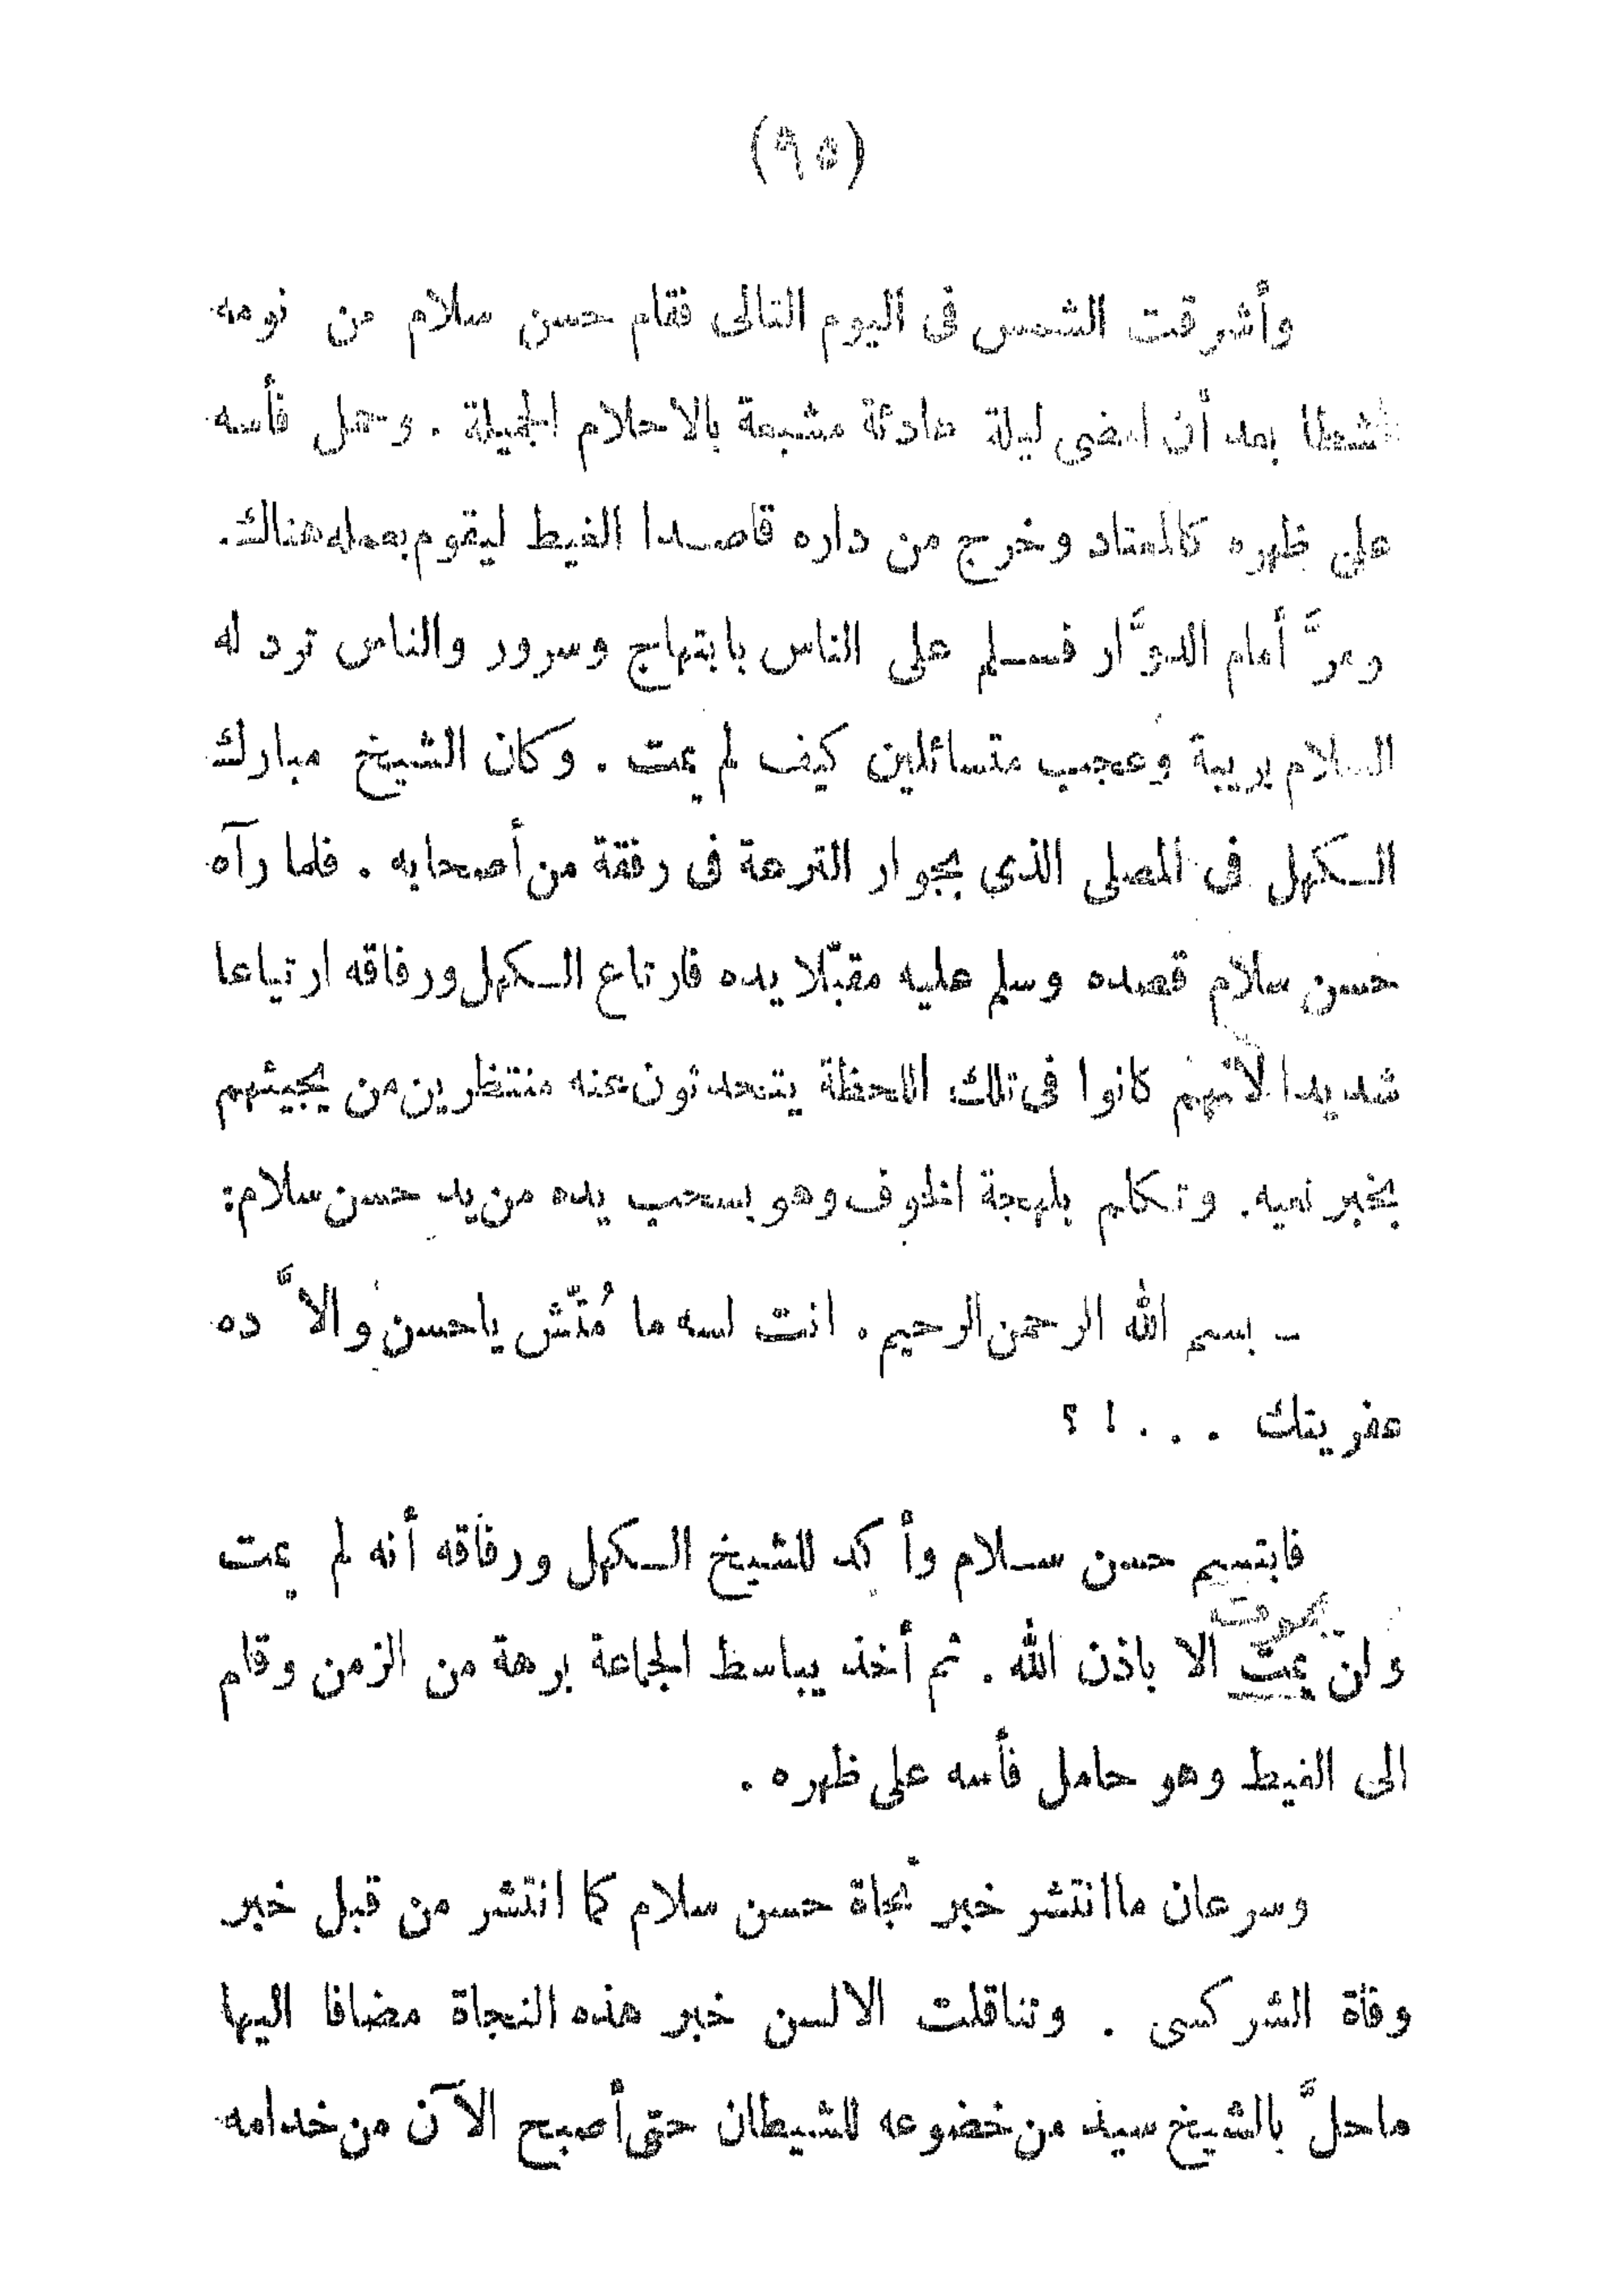 (٩٥)
وأشرقت الشمس فى اليوم التالى فقام حسن سلام من نومه
نشطا بعد أن امضى ليلة هادئة مشبعة بالاحلام الجميلة . وحمل فأسه
على ظهره كالمعتاد وخرج من داره قاصدا الغيط ليقوم بعمله هناك.
ومرَّ أمام الدوَّار فسلم على الناس بابتهاج وسرور والناس ترد له
السلام بريبة وعجب متسائلين كيف لم يمت . وكان الشيخ مبارك
الكهل فى المصلى الذى بجوار الترعة فى رفقة من أصحابه . فلما رآه
حسن سلام قصده وسلم عليه مقبّلا يده فارتاع الكهل ورفاقه ارتياعا
شديدا لأنهم كانوا فى تلك اللحظة يتحدثون عنه منتظرين من يجيئهم
بخبر نعيه. وتكلم بلهجة الخوف وهو يسحب يده من يد حسن سلام:
ـ بسم الله الرحمن الرحيم . انت لسه ما مُتّش ياحسن والاَّ ده
عفريتك . . . ! ؟
فابتسم حسن سلام وأكد للشيخ الكهل ورفاقه أنه لم يمت
يموت
ولن يمت الا باذن الله . ثم أخذ يباسط الجماعة برهة من الزمن وقام
الى الغيط وهو حامل فأسه على ظهره .
وسرعان ماانتشر خبر نجاة حسن سلام كما انتشر من قبل خبر
وفاة الشركسى . وتناقلت الالسن خبر هذه النجاة مضافا اليها
ماحلَّ بالشيخ سيد من خضوعه للشيطان حتى أصبح الآن من خدامه